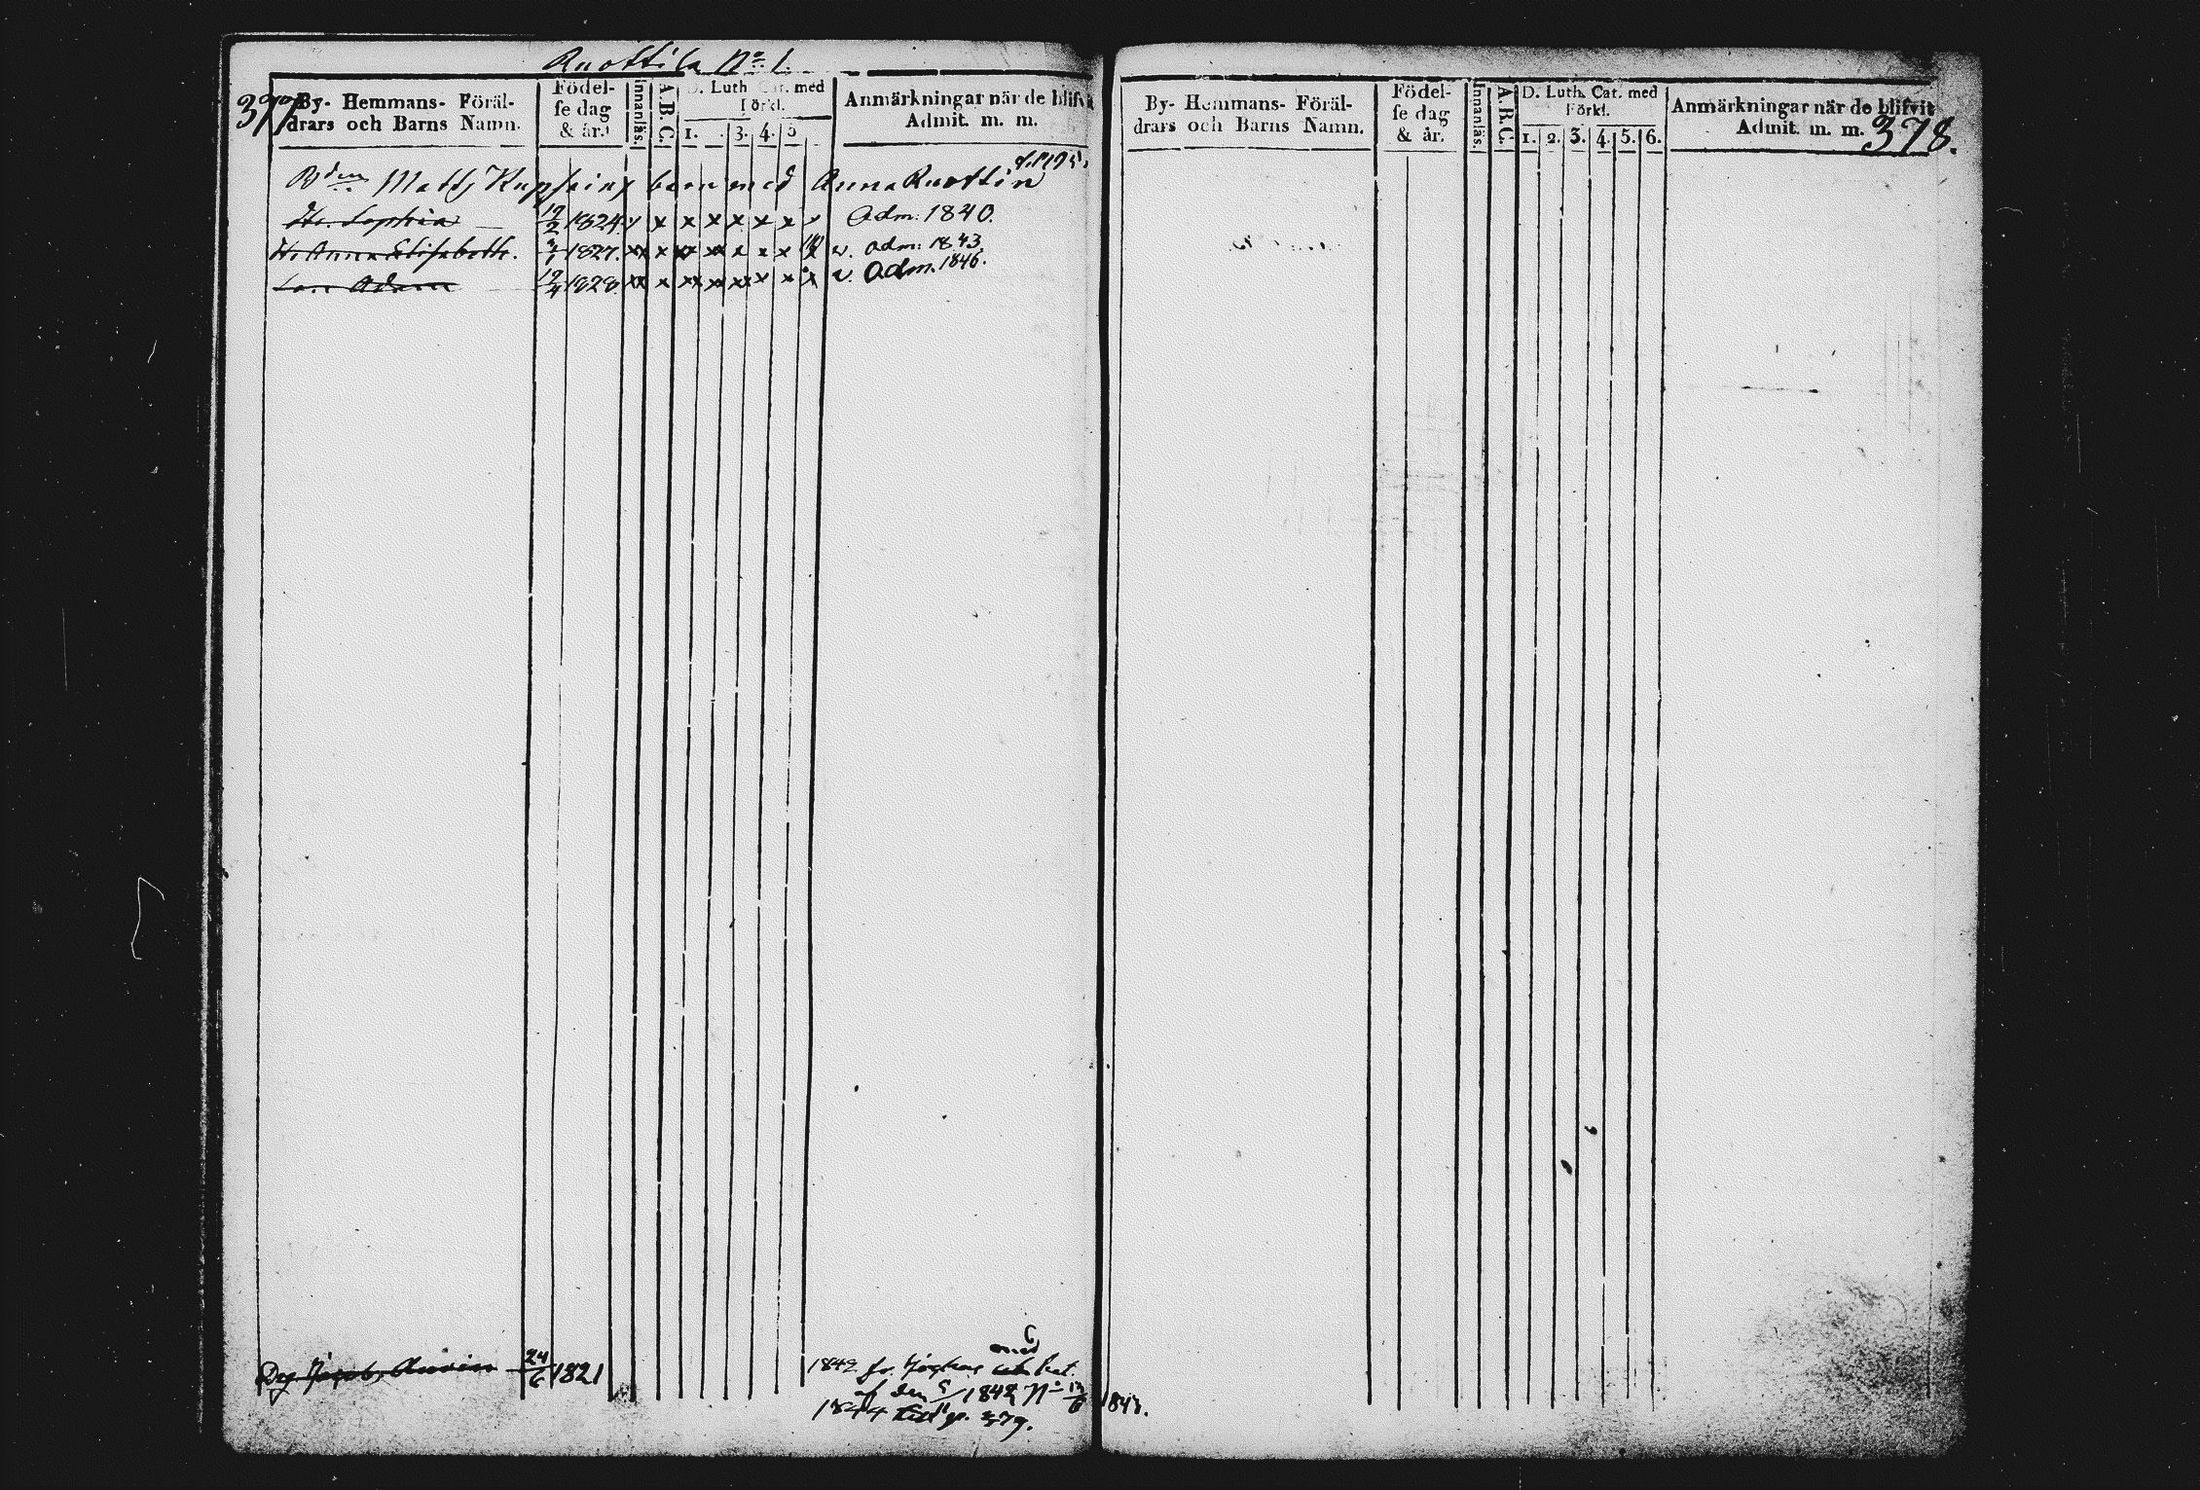 Ruottila No 1.
377
By- Hemmans- Föräl-
drars och Barns Namn.
Födel-
se dag
& år.
Innanläs.
A.B.C.
D. Luth. Cat. med
Förkl.
1. 3. 4. 5
Anmärkningar när de blifvit
Admit. m. m.
Bden Matts barn med Anna Ruottin
Sophia 19/2 1824. x x x x x x x x Adm: 1840.
Anna Elisabeth. 1827. xx x xx xx x x x v. adm: 1843.
Son Adam 19/4 1828. xx x xx xx xx x x x v. Adm. 1846.
Jacob 24/6 1821
med
1842 fr.
af den 1842 No 1843.
1844 till p. 379.
By- Hemmans- Föräl-
drars och Barns Namn.
Födel-
se dag
& år.
Innanläs.
A.B.C.
D. Luth. Cat. med
Förkl.
1. 2. 3. 4. 5. 6.
Anmärkningar när de blifvit
Admit. m. m.
378.